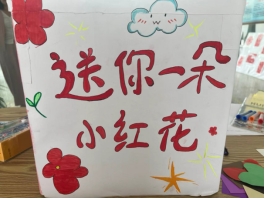 送你一朵
小红花